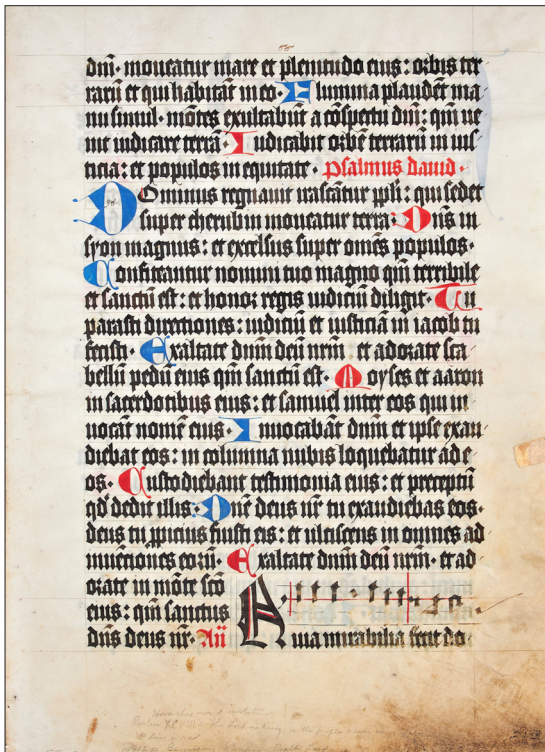 dm̄· moueatur mare et plenitudo eius : orbis ter
rarū et qui habitāt in eo· Flumina plaudēt ma
nu simul· mōtes exultabūt a cōspectu dm̄: qm̄ ue
nit iudicare terrā· Iudicabit orbē terrarū in ius
ticia : et populos in equitate· psalmus dauid·
DOminus regnauit irascātur ppl̄i : qui sedet
super cherubin moueatur terra: Dn̄s in
syon magnus : et excelsus super om̄es populos·
Confiteantur nomini tuo magno qm̄ terribile
et sanctū est : et honor regis iudiciū diligit· Tu
parasti directiones : iudiciū et iusticiā in iacob tu
fecisti· Exaltate dn̄m deū nr̄m : et adorate sca
bellū pedū eius qm̄ sanctū est· Moyses et aaron
in sacerdotibus eius : et samuel inter eos qui in
uocāt nomē eius· Inuocabāt dn̄m et ipse exau
diebat eos : in columna nubis loquebatur ad e
os· Custodiebant testimonia eius : et preceptū
qd̄ dedit illis: Dn̄e deus nr̄ tu exaudiebas eos·
deus tu ꝓpicius fuisti eis : et ulciscens in omnes ad
inuētiones eorū· Exaltate dn̄m deū nr̄m· et ad
orate in mōte sc̄o
eius : qm̄ sanctus
dn̄s deus nr̄· An̄
Quia mirabilia fecit do